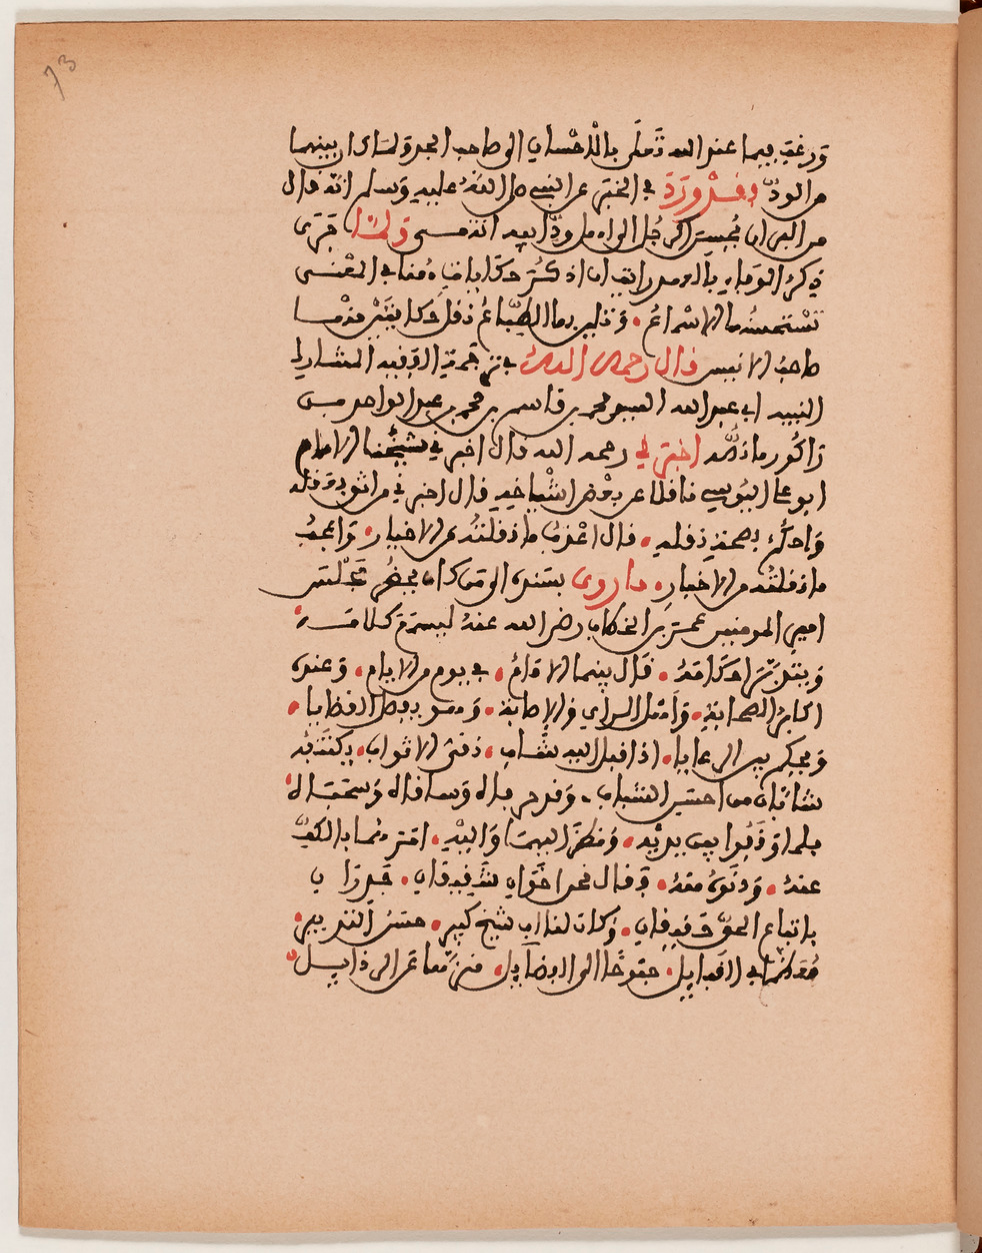 73
ورغبة فيما عند الله تعلى بالاحسان الى صاحب الجد ولما كان بينهما
من الود فقد ورد في الخبر عن النبي صلى الله عليه وسلم انه قال
من البر ان يحسن الرجل الى اهل ود ابيه انتهى ولما جرى
ذكر الوفاء بالعهد رايت ان اذكر حكاية هنا في المعنى
تستحسنها الاسماع وتليد بها الطباع نقل حكايتين منها
صاحب الانيس قال رحمه الله في ترجمة الفقيه المشارك
النبيه ابي عبد الله السيد محمد بن قاسم بن محمد بن عبد الواحد بن
زاكور ما نصه اخبرني رحمه الله قال اخبرني شيخنا الامام
ابو علي اليوسي ناقلا عن بعض اشياخه قال اخبرني من اثق بنقله
واحكم بصحة نقله قال اغرب ما نقلته من الاخبار واعجب
ما نقلته من الاخبار ما روي بسنده الى من كان يحضر مجلس
امير المومنين عمر بن الخطاب رضي الله عنه ليسمع كلامه
قال بينما الامام في يوم من الايام وعنده
اكابر الصحابة واهل الراي والاصابة وهو يفصل القضايا
ويحكم بين الرعايا اذ اقبل اليه شاب نقي الاثواب يكتنفه
شابان من احسن الشباب وقد جذباه وساقاه وسحباه
فلما وقفوا بين يديه ونظر اليهما واليه امرهما بالكف
عنه ودنوه منه فقال نحن اخوان شقيقان جديران
باتباع الحق حقيقان وكان لنا اب شيخ كبير حسن التدبير
معظما في القبايل منزها عن الرذايل